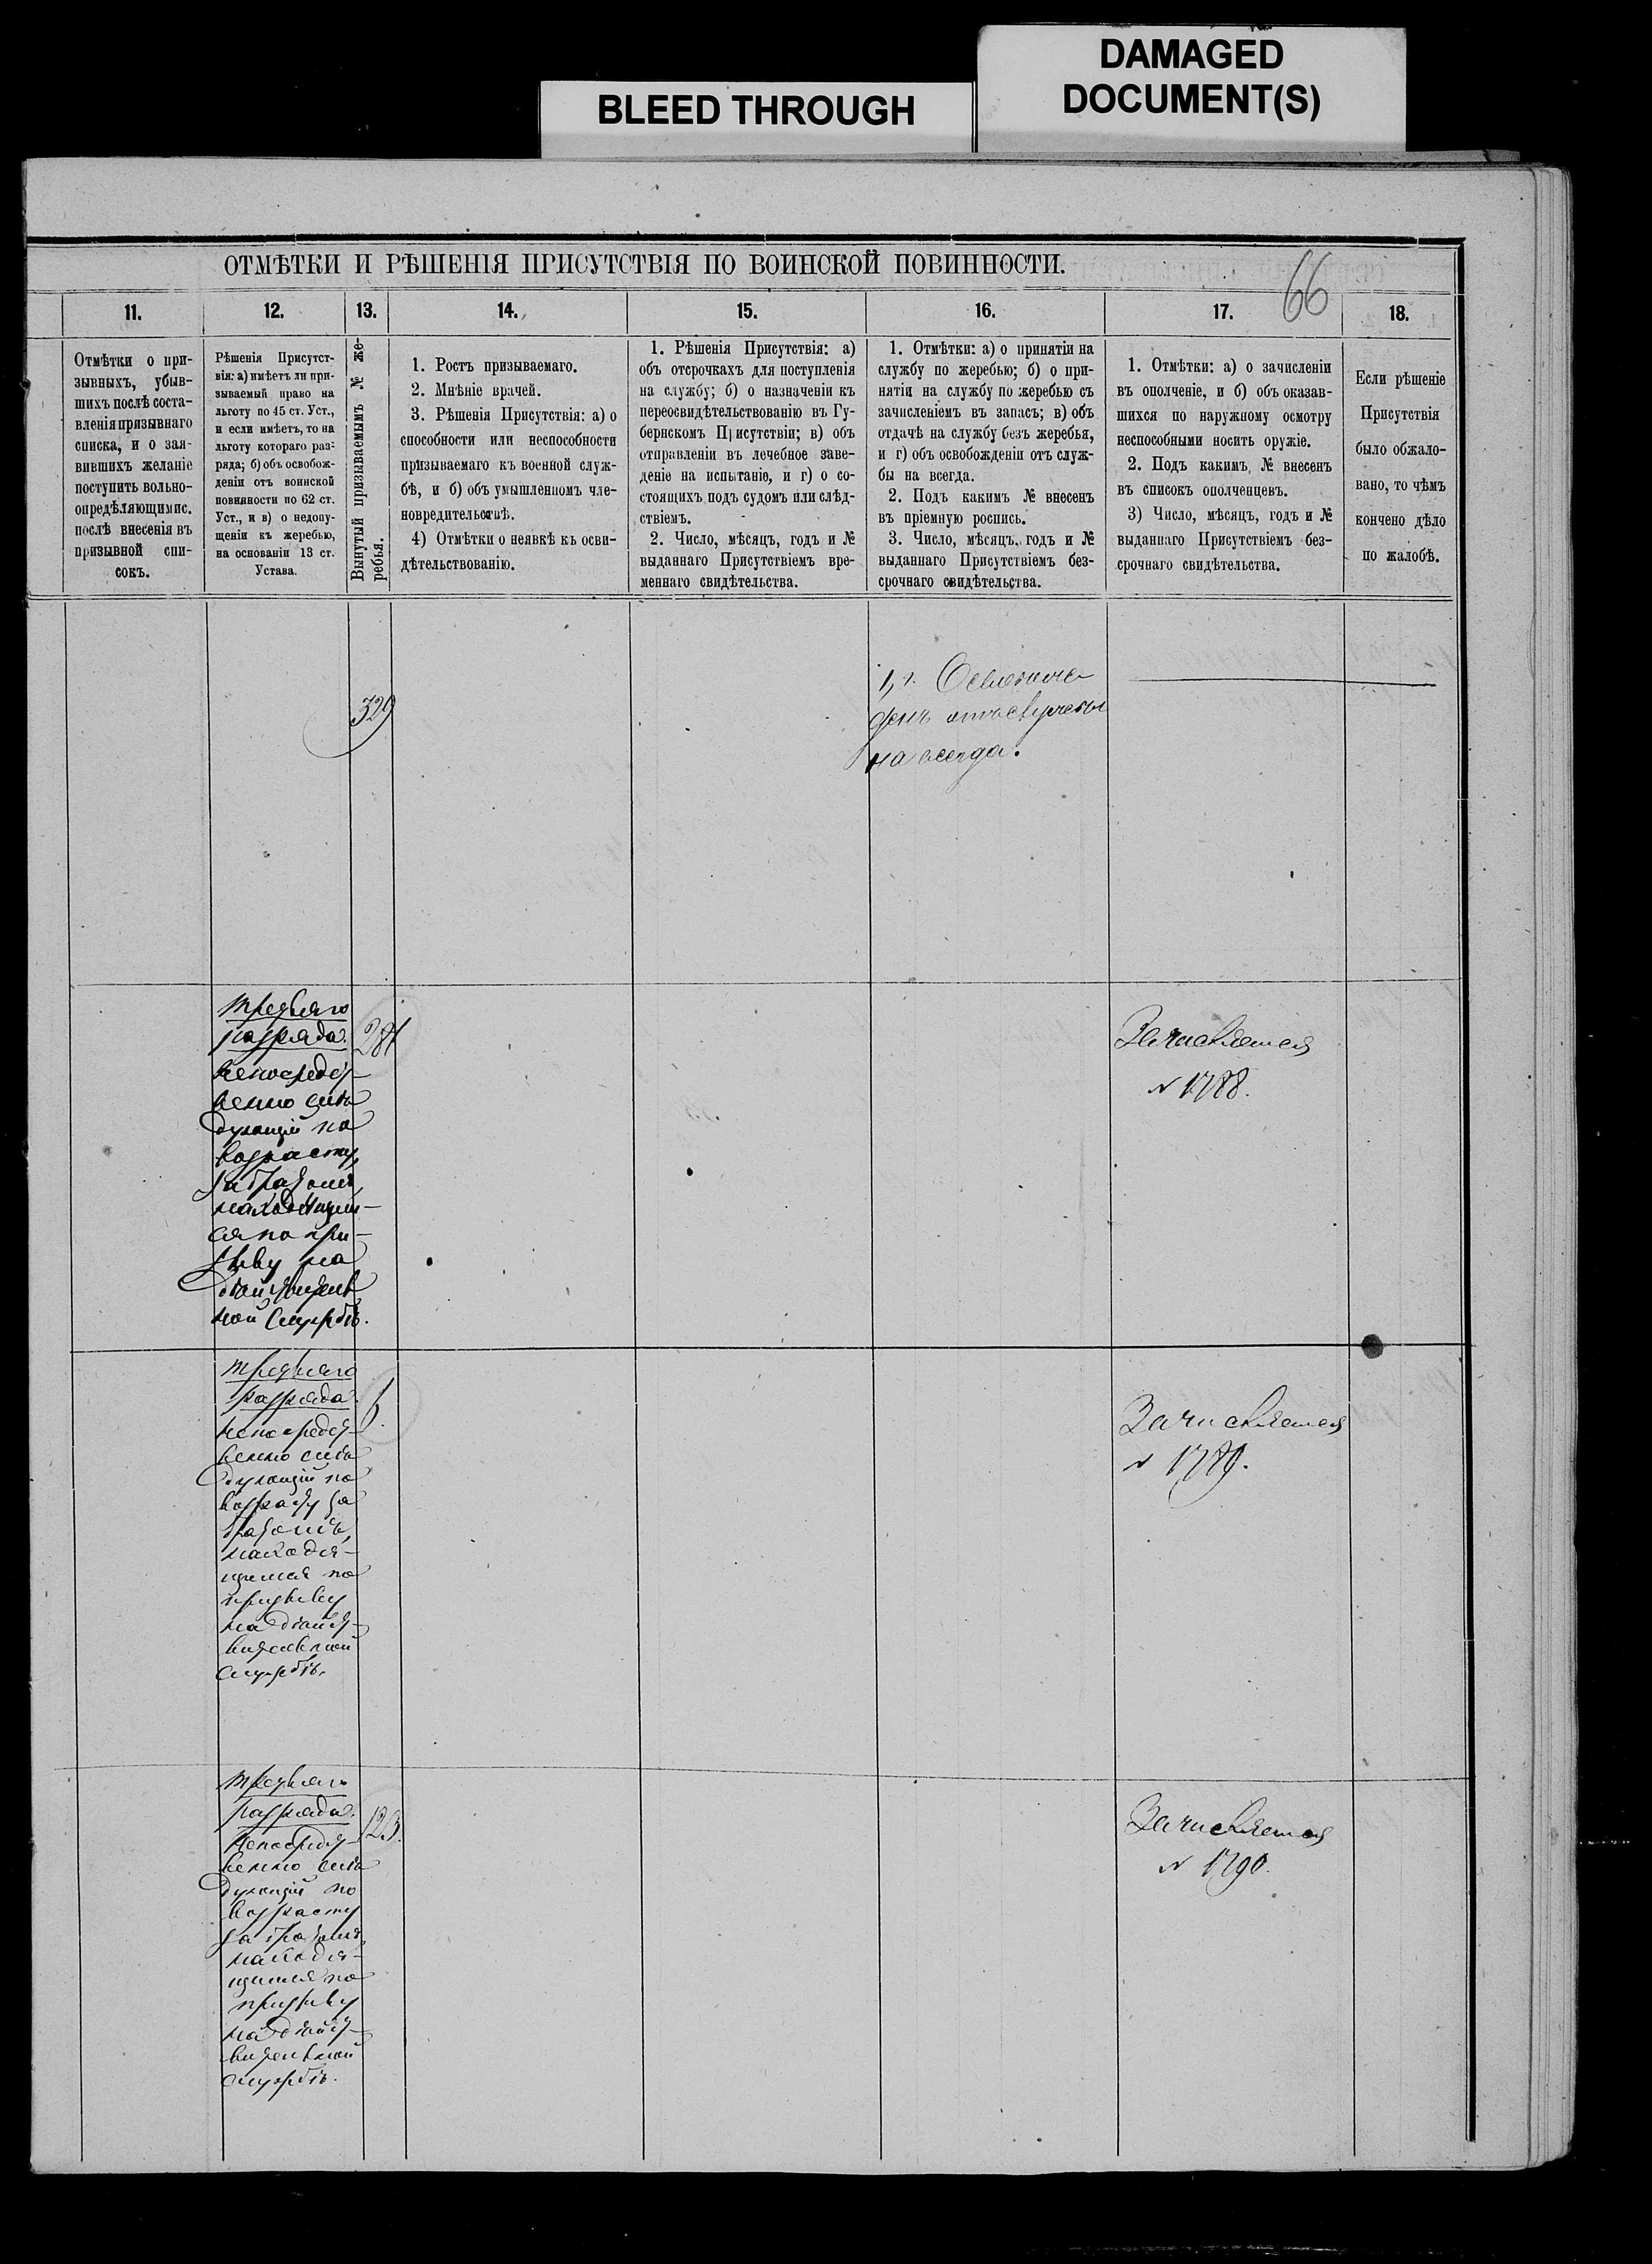 BLEED THROUGH
DAMAGED
DOCUMENT(S)
ОТМѢТКИ И РѢШЕНІЯ ПРИСУТСТВІЯ ПО ВОИНСКОЙ ПОВИННОСТИ.
66
11.
12.
13.
14.
15.
16.
17.
18.
Отмѣтки о при-
зывныхъ, убыв-
шихъ послѣ соста-
вленія призывнаго
списка, и о зая-
вившихъ желаніе
поступить вольно-
опредѣляющимис.
послѣ внесенія въ
призывной спи-
сокъ.
Рѣшенія Присутст-
вія: а) имѣетъ ли при-
зываемый право на
льготу по 45 ст. Уст.,
и если имѣетъ, то на
льготу котораго раз-
ряда; б) объ освобож-
деніи отъ воинской
повинности по 62 ст.
Уст., и в) о недопу-
щеніи къ жеребью,
на основаніи 13 ст.
Устава.
Вынутый призываемымъ № же-
ребья.
1. Ростъ призываемаго.
2. Мнѣніе врачей.
3. Рѣшенія Присутствія: а) о
способности или неспособности
призываемаго къ военной служ-
бѣ, и б) объ умышленномъ чле-
новредительствѣ.
4) Отмѣтки о неявкѣ къ осви-
дѣтельствованію.
1. Рѣшенія Присутствія: а)
объ отсрочкахъ для поступленія
на службу; б) о назначеніи къ
переосвидѣтельствованію въ Гу-
бернскомъ Присутствіи; в) объ
отправленіи въ лечебное заве-
деніе на испытаніе, и г) о со-
стоящихъ подъ судомъ или слѣд-
ствіемъ.
2. Число, мѣсяцъ, годъ и №
выданнаго Присутствіемъ вре-
меннаго свидѣтельства.
1. Отмѣтки: а) о принятіи на
службу по жеребью; б) о при-
нятіи на службу по жеребью съ
зачисленіемъ въ запасъ; в) объ
отдачѣ на службу безъ жеребья,
и г) объ освобожденіи отъ служ-
бы на всегда.
2. Подъ какимъ № внесенъ
въ пріемную роспись.
3. Число, мѣсяцъ, годъ и №
выданнаго Присутствіемъ без-
срочнаго свидѣтельства.
1. Отмѣтки: а) о зачисленіи
въ ополченіе, и б) объ оказав-
шихся по наружному осмотру
неспособными носить оружіе.
2. Подъ какимъ № внесенъ
въ списокъ ополченцевъ.
3) Число, мѣсяцъ, годъ и №
выданнаго Присутствіемъ без-
срочнаго свидѣтельства.
Если рѣшеніе
Присутствія
было обжало-
вано, то чѣмъ
кончено дѣло
по жалобѣ.
329
1, г. Освобож-
денъ отъ службы
на всегда.
третьяго
разряда.
непосредст-
венно слѣ
дующій по
возрасту,
за братомъ,
находящим-
ся по при-
зыву на
дѣйствитель
ной службѣ.
281
Зачисляется
№ 1788.
третьяго
разряда.
непосредст-
венно слѣ
дующій по
возрасту за
братомъ,
находя-
щимся по
призыву
на дѣйст-
вительной
службѣ.
6.
Зачисляется
№ 1789.
третьяго
разряда.
непосредст-
венно слѣ
дующій по
возрасту
за братомъ,
находя-
щимся по
призыву
на дѣйст-
вительной
службѣ.
123.
Зачисляется
№ 1790.